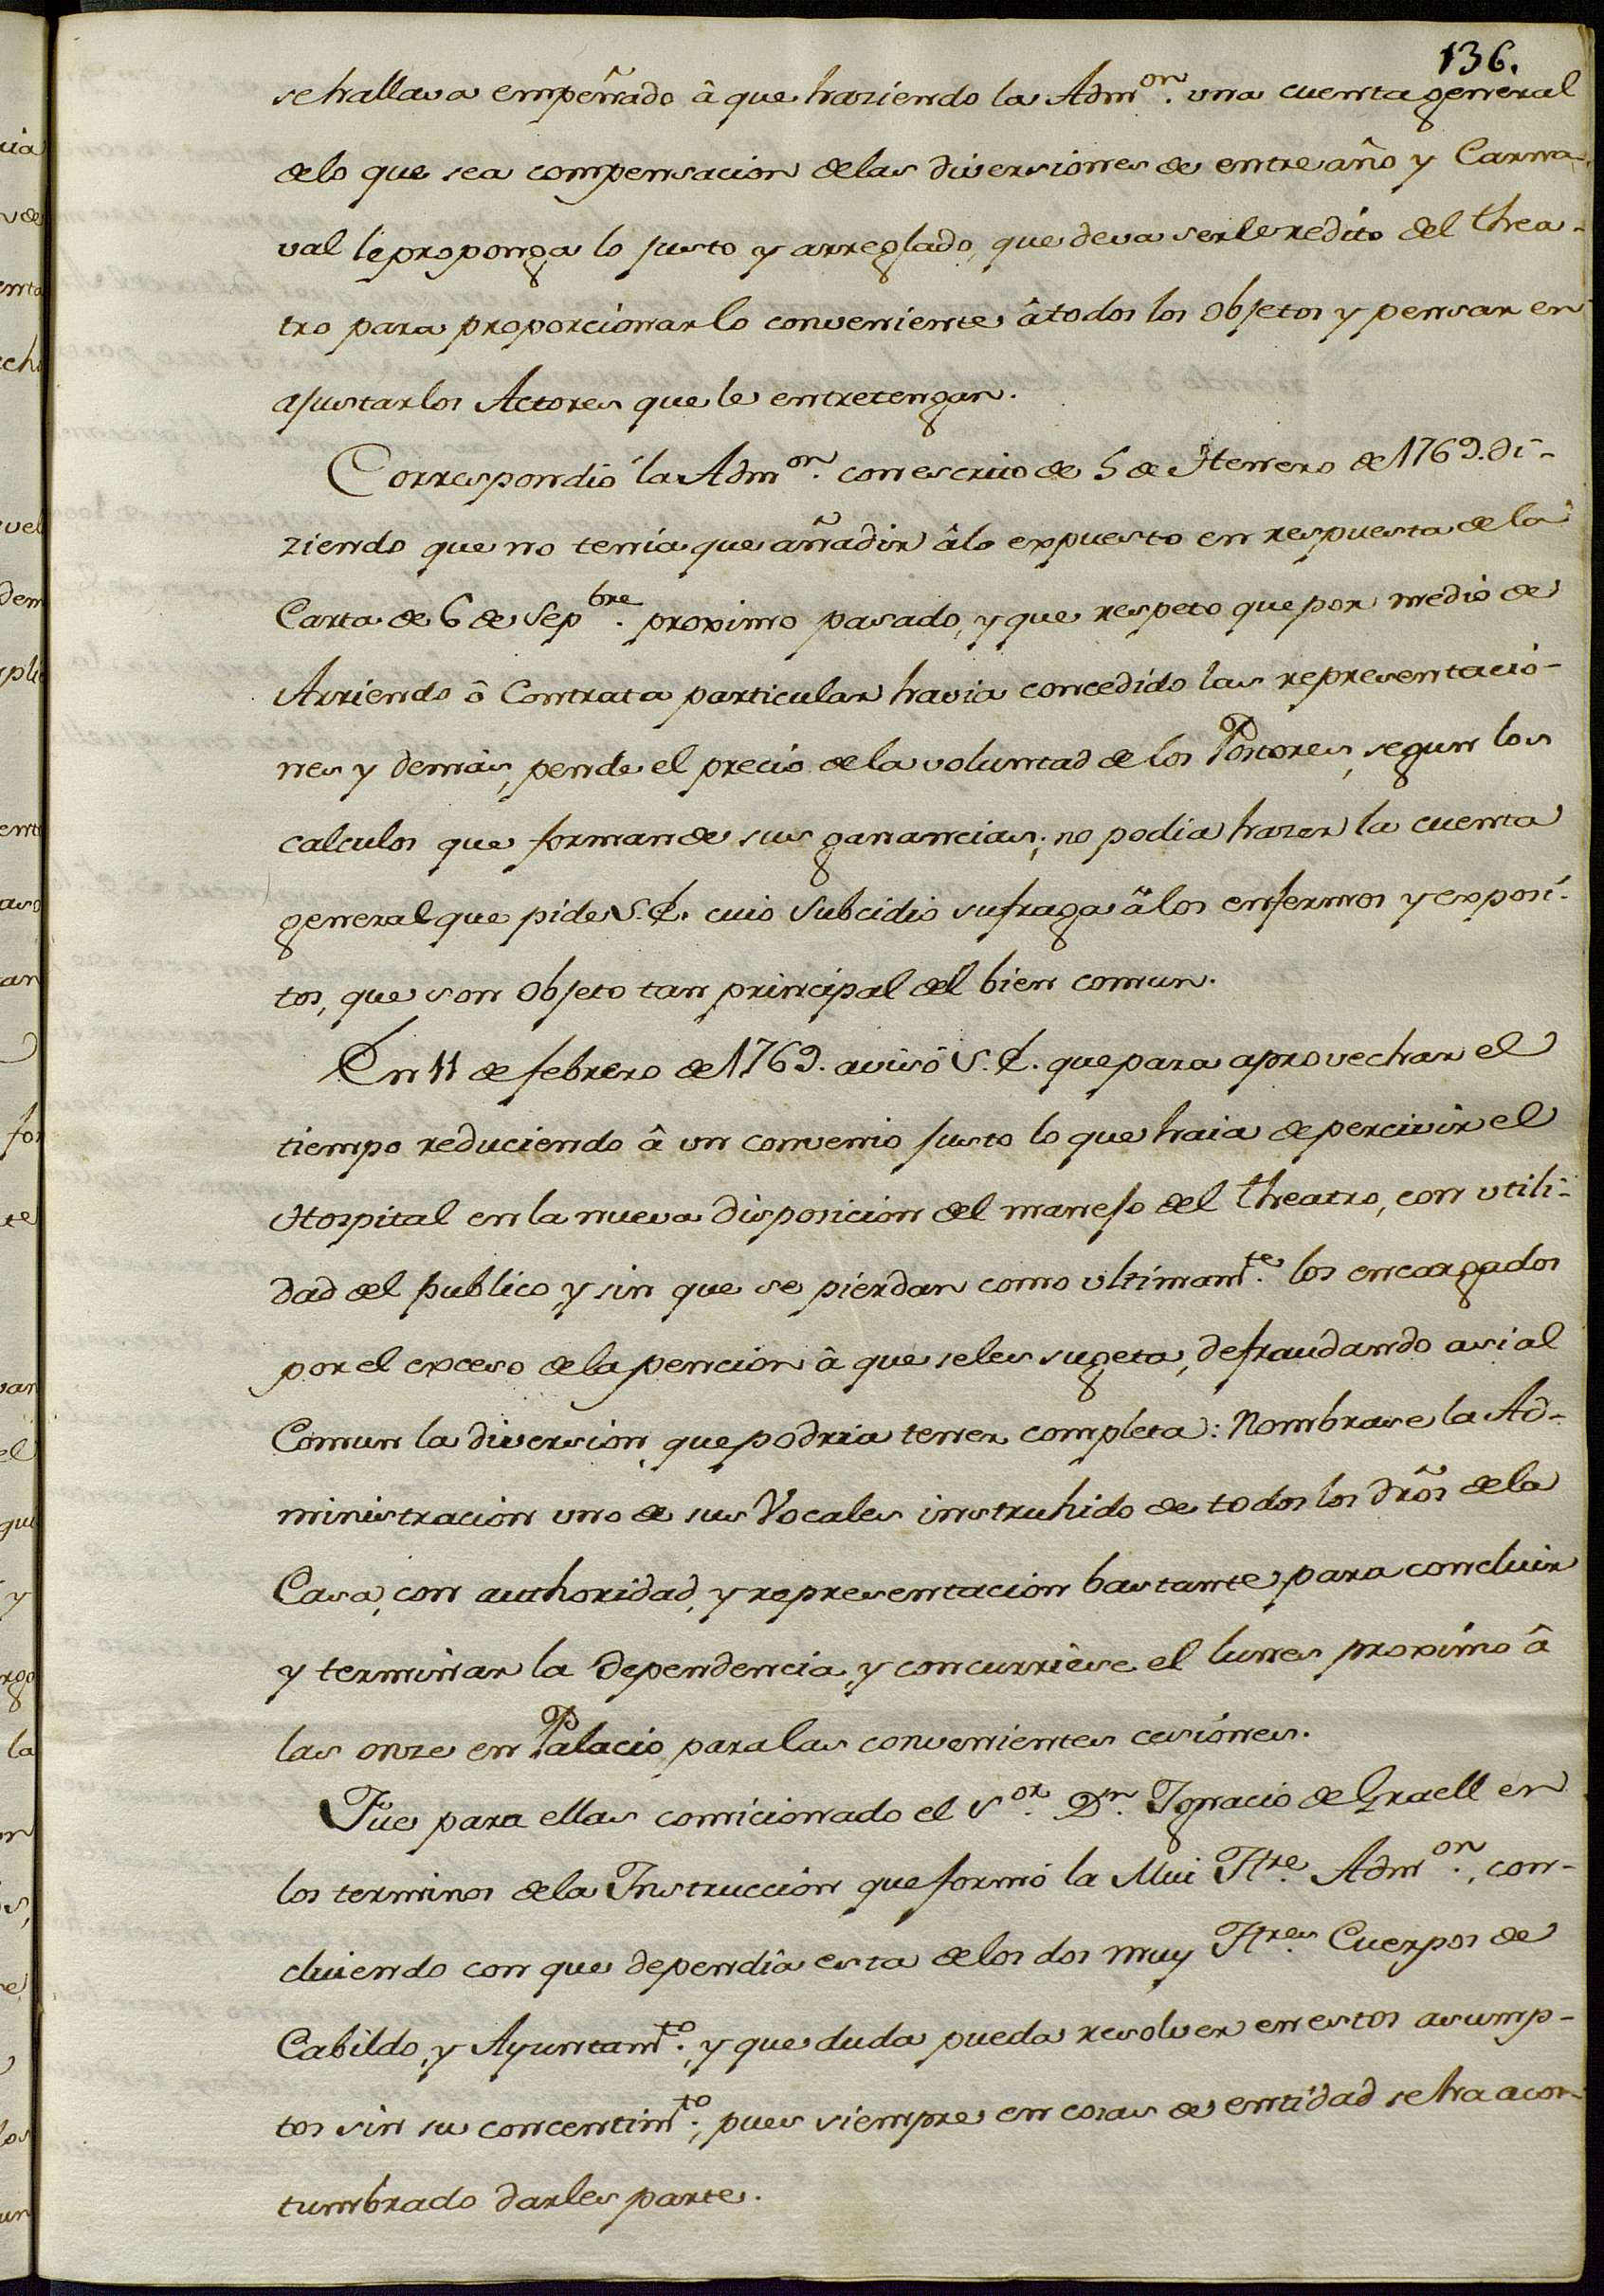 136.
se hallava empeñado â que haziendo la Adm.on una cuenta general
de lo que sea compensacion de las diversiones de entre año y Carna-
val le proponga lo justo y arreglado, que deva ser le redito del thea-
tro para proporcionar lo conveniente â todos los Objetos y pensar en
ajustar los Actores que le entretengan.
Correspondió la Adm.on con escrito de 5 de Henero de 1769. di-
ziendo que no tenia que añadir â lo expuesto en respuesta de la
Carta de 6 de Sep.bre proximo pasado, y que respeto que por medio de
Arriendo ô Contrata particular havia concedido las representacio-
nes y demás, pende el precio de la voluntad de los Postores, segun los
calculos que forman de sus ganancias; no podia hazer la cuenta
general que pide S.E. cuio Subcidio sufraga â los enfermos y exposi-
tos, que son Objeto tan principal del bien comun.
En 11 de febrero de 1769. avisó S.E. que para aprovechar el
tiempo reduciendo â un convenio justo lo que haia de percivir el
Hospital en la nueva disposicion del manejo del theatro, con utili-
dad del publico, y sin que se pierdan como ultimam.te los encargados
por el exceso de la pencion â que se les sugeta, defraudando asi al
Comun la diversion que podria tener completa: Nombrase la Ad-
ministracion uno de sus Vocales instruhido de todos los dr̃os de la
Casa, con authoridad, y representacion bastante para concluir
y terminar la dependencia, y concurriese el lunes proximo â
las onze en Palacio para las convenientes cesiones.
Fue para ellas comicionado el S.or D.n Ignacio de Graell en
los terminos de la Instruccion que formó la Mui Itre. Adm.on, con-
cluiendo con que dependia esta de los dos muy Itres. Cuerpos de
Cabildo, y Ayuntam.to, y que duda pueda resolver en estos asump-
tos sin su concentim.to; pues siempre en cosas de entidad se ha acos-
tumbrado darles parte.